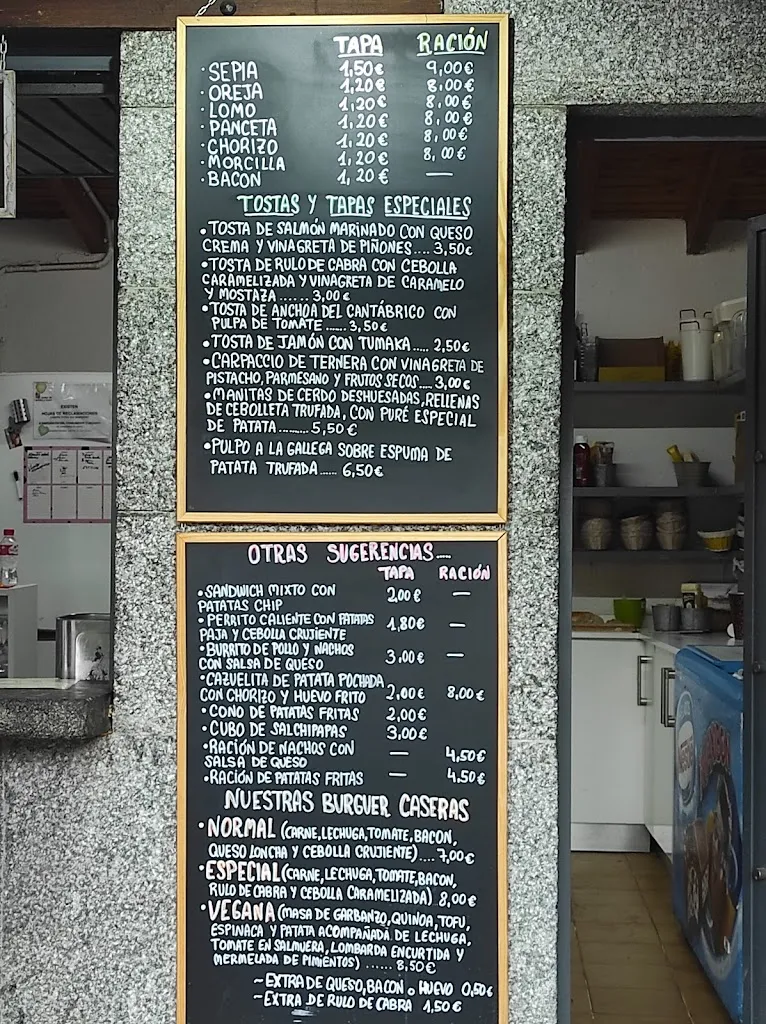 TAPA RACIÓN
· SEPIA 1,50€ 9,00€
· OREJA 1,20€ 8,00€
· LOMO 1,20€ 8,00€
· PANCETA 1,20€ 8,00€
· CHORIZO 1,20€ 8,00€
· MORCILLA 1,20€ 8,00€
· BACON 1,20€ —
TOSTAS Y TAPAS ESPECIALES
• TOSTA DE SALMÓN MARINADO CON QUESO
CREMA Y VINAGRETA DE PIÑONES.... 3,50€
• TOSTA DE RULO DE CABRA CON CEBOLLA
CARAMELIZADA Y VINAGRETA DE CARAMELO
Y MOSTAZA ...... 3,00€
• TOSTA DE ANCHOA DEL CANTÁBRICO CON
PULPA DE TOMATE ...... 3,50€
• TOSTA DE JAMÓN CON TUMAKA ..... 2,50€
• CARPACCIO DE TERNERA CON VINAGRETA DE
PISTACHO, PARMESANO Y FRUTOS SECOS.... 3,00€
• MANITAS DE CERDO DESHUESADAS, RELLENAS
DE CEBOLLETA TRUFADA, CON PURÉ ESPECIAL
DE PATATA ......... 5,50€
• PULPO A LA GALLEGA SOBRE ESPUMA DE
PATATA TRUFADA ..... 6,50€
OTRAS SUGERENCIAS....
TAPA RACIÓN
• SANDWICH MIXTO CON
PATATAS CHIP 2,00€ —
• PERRITO CALIENTE CON PATATAS
PAJA Y CEBOLLA CRUJIENTE 1,80€ —
• BURRITO DE POLLO Y NACHOS
CON SALSA DE QUESO 3,00€ —
• CAZUELITA DE PATATA POCHADA
CON CHORIZO Y HUEVO FRITO 2,00€ 8,00€
• CONO DE PATATAS FRITAS 2,00€
• CUBO DE SALCHIPAPAS 3,00€
• RACIÓN DE NACHOS CON
SALSA DE QUESO — 4,50€
• RACIÓN DE PATATAS FRITAS — 4,50€
NUESTRAS BURGUER CASERAS
• NORMAL (CARNE, LECHUGA, TOMATE, BACON,
QUESO LONCHA Y CEBOLLA CRUJIENTE).... 7,00€
• ESPECIAL (CARNE, LECHUGA, TOMATE, BACON,
RULO DE CABRA Y CEBOLLA CARAMELIZADA) 8,00€
• VEGANA (MASA DE GARBANZO, QUINOA, TOFU,
ESPINACA Y PATATA ACOMPAÑADA DE LECHUGA,
TOMATE EN SALMUERA, LOMBARDA ENCURTIDA Y
MERMELADA DE PIMIENTOS) ...... 8,50€
~ EXTRA DE QUESO, BACON o HUEVO 0,50€
~ EXTRA DE RULO DE CABRA 1,50€
EXISTEN
HOJAS DE RECLAMACIONES